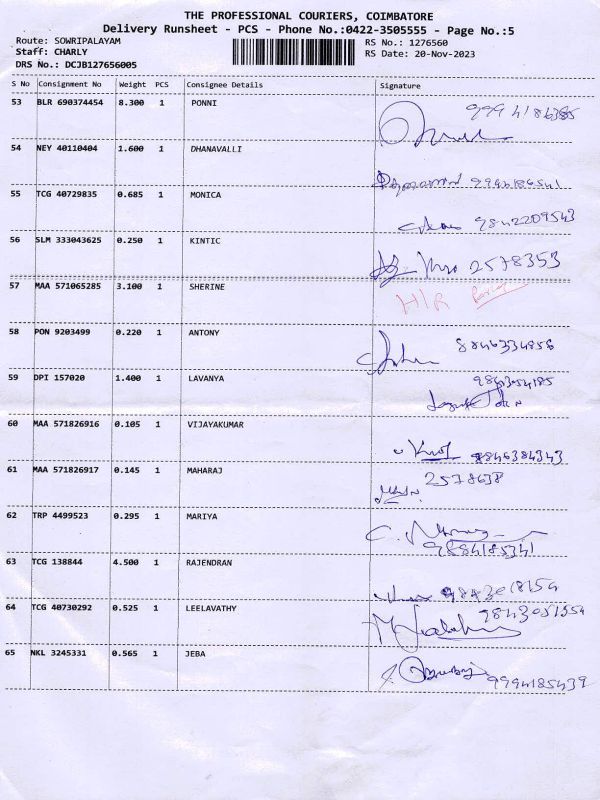 THE PROFESSIONAL COURIERS, COIMBATORE
Delivery Runsheet - PCS - Phone No.:0422-3505555 - Page No.:5
Route: SOWRIPALAYAM
RS No.: 1276560
Staff: CHARLY
RS Date: 20-Nov-2023
DRS No.: DCJB127656005
S No Consignment No Weight PCS Consignee Details Signature
53 BLR 690374454 8.300 1 PONNI
54 NEY 40110404 1.600 1 DHANAVALLI
55 TCG 40729835 0.685 1 MONICA 9842209543
56 SLM 333043625 0.250 1 KINTIC 2578353
57 MAA 571065285 3.100 1 SHERINE H/R
58 PON 9203499 0.220 1 ANTONY
59 DPI 157020 1.400 1 LAVANYA
60 MAA 571826916 0.105 1 VIJAYAKUMAR 9846384343
61 MAA 571826917 0.145 1 MAHARAJ 2578638
62 TRP 4499523 0.295 1 MARIYA
63 TCG 138844 4.500 1 RAJENDRAN
64 TCG 40730292 0.525 1 LEELAVATHY
65 NKL 3245331 0.565 1 JEBA 9994185439